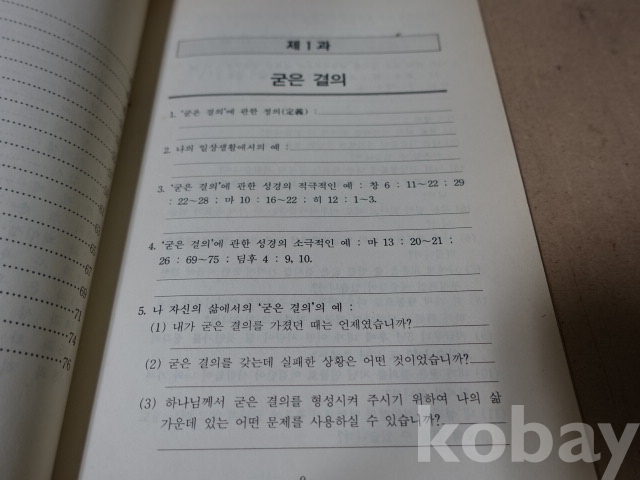 제 1 과
굳은 결의
1. '굳은 결의'에 관한 정의(定義) :
2. 나의 일상생활에서의 예 :
3. '굳은 결의'에 관한 성경의 적극적인 예 : 창 6 : 11~22 ; 29
: 22~28 ; 마 10 : 16~22 ; 히 12 : 1~3.
4. '굳은 결의'에 관한 성경의 소극적인 예 : 마 13 : 20~21 ;
26 : 69~75 ; 딤후 4 : 9, 10.
5. 나 자신의 삶에서의 '굳은 결의'의 예 :
(1) 내가 굳은 결의를 가졌던 때는 언제였습니까?
(2) 굳은 결의를 갖는데 실패한 상황은 어떤 것이었습니까?
(3) 하나님께서 굳은 결의를 형성시켜 주시기 위하여 나의 삶
가운데 있는 어떤 문제를 사용하실 수 있습니까?
67
69
71
74
76
kobay